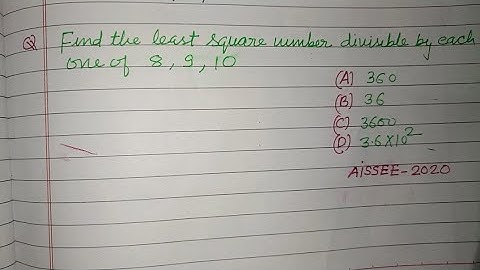 Q Find the least square number divisible by each
one of 8, 9, 10
(A) 360
(B) 36
(C) 3600
(D) 3.6×10²
AISSEE-2020